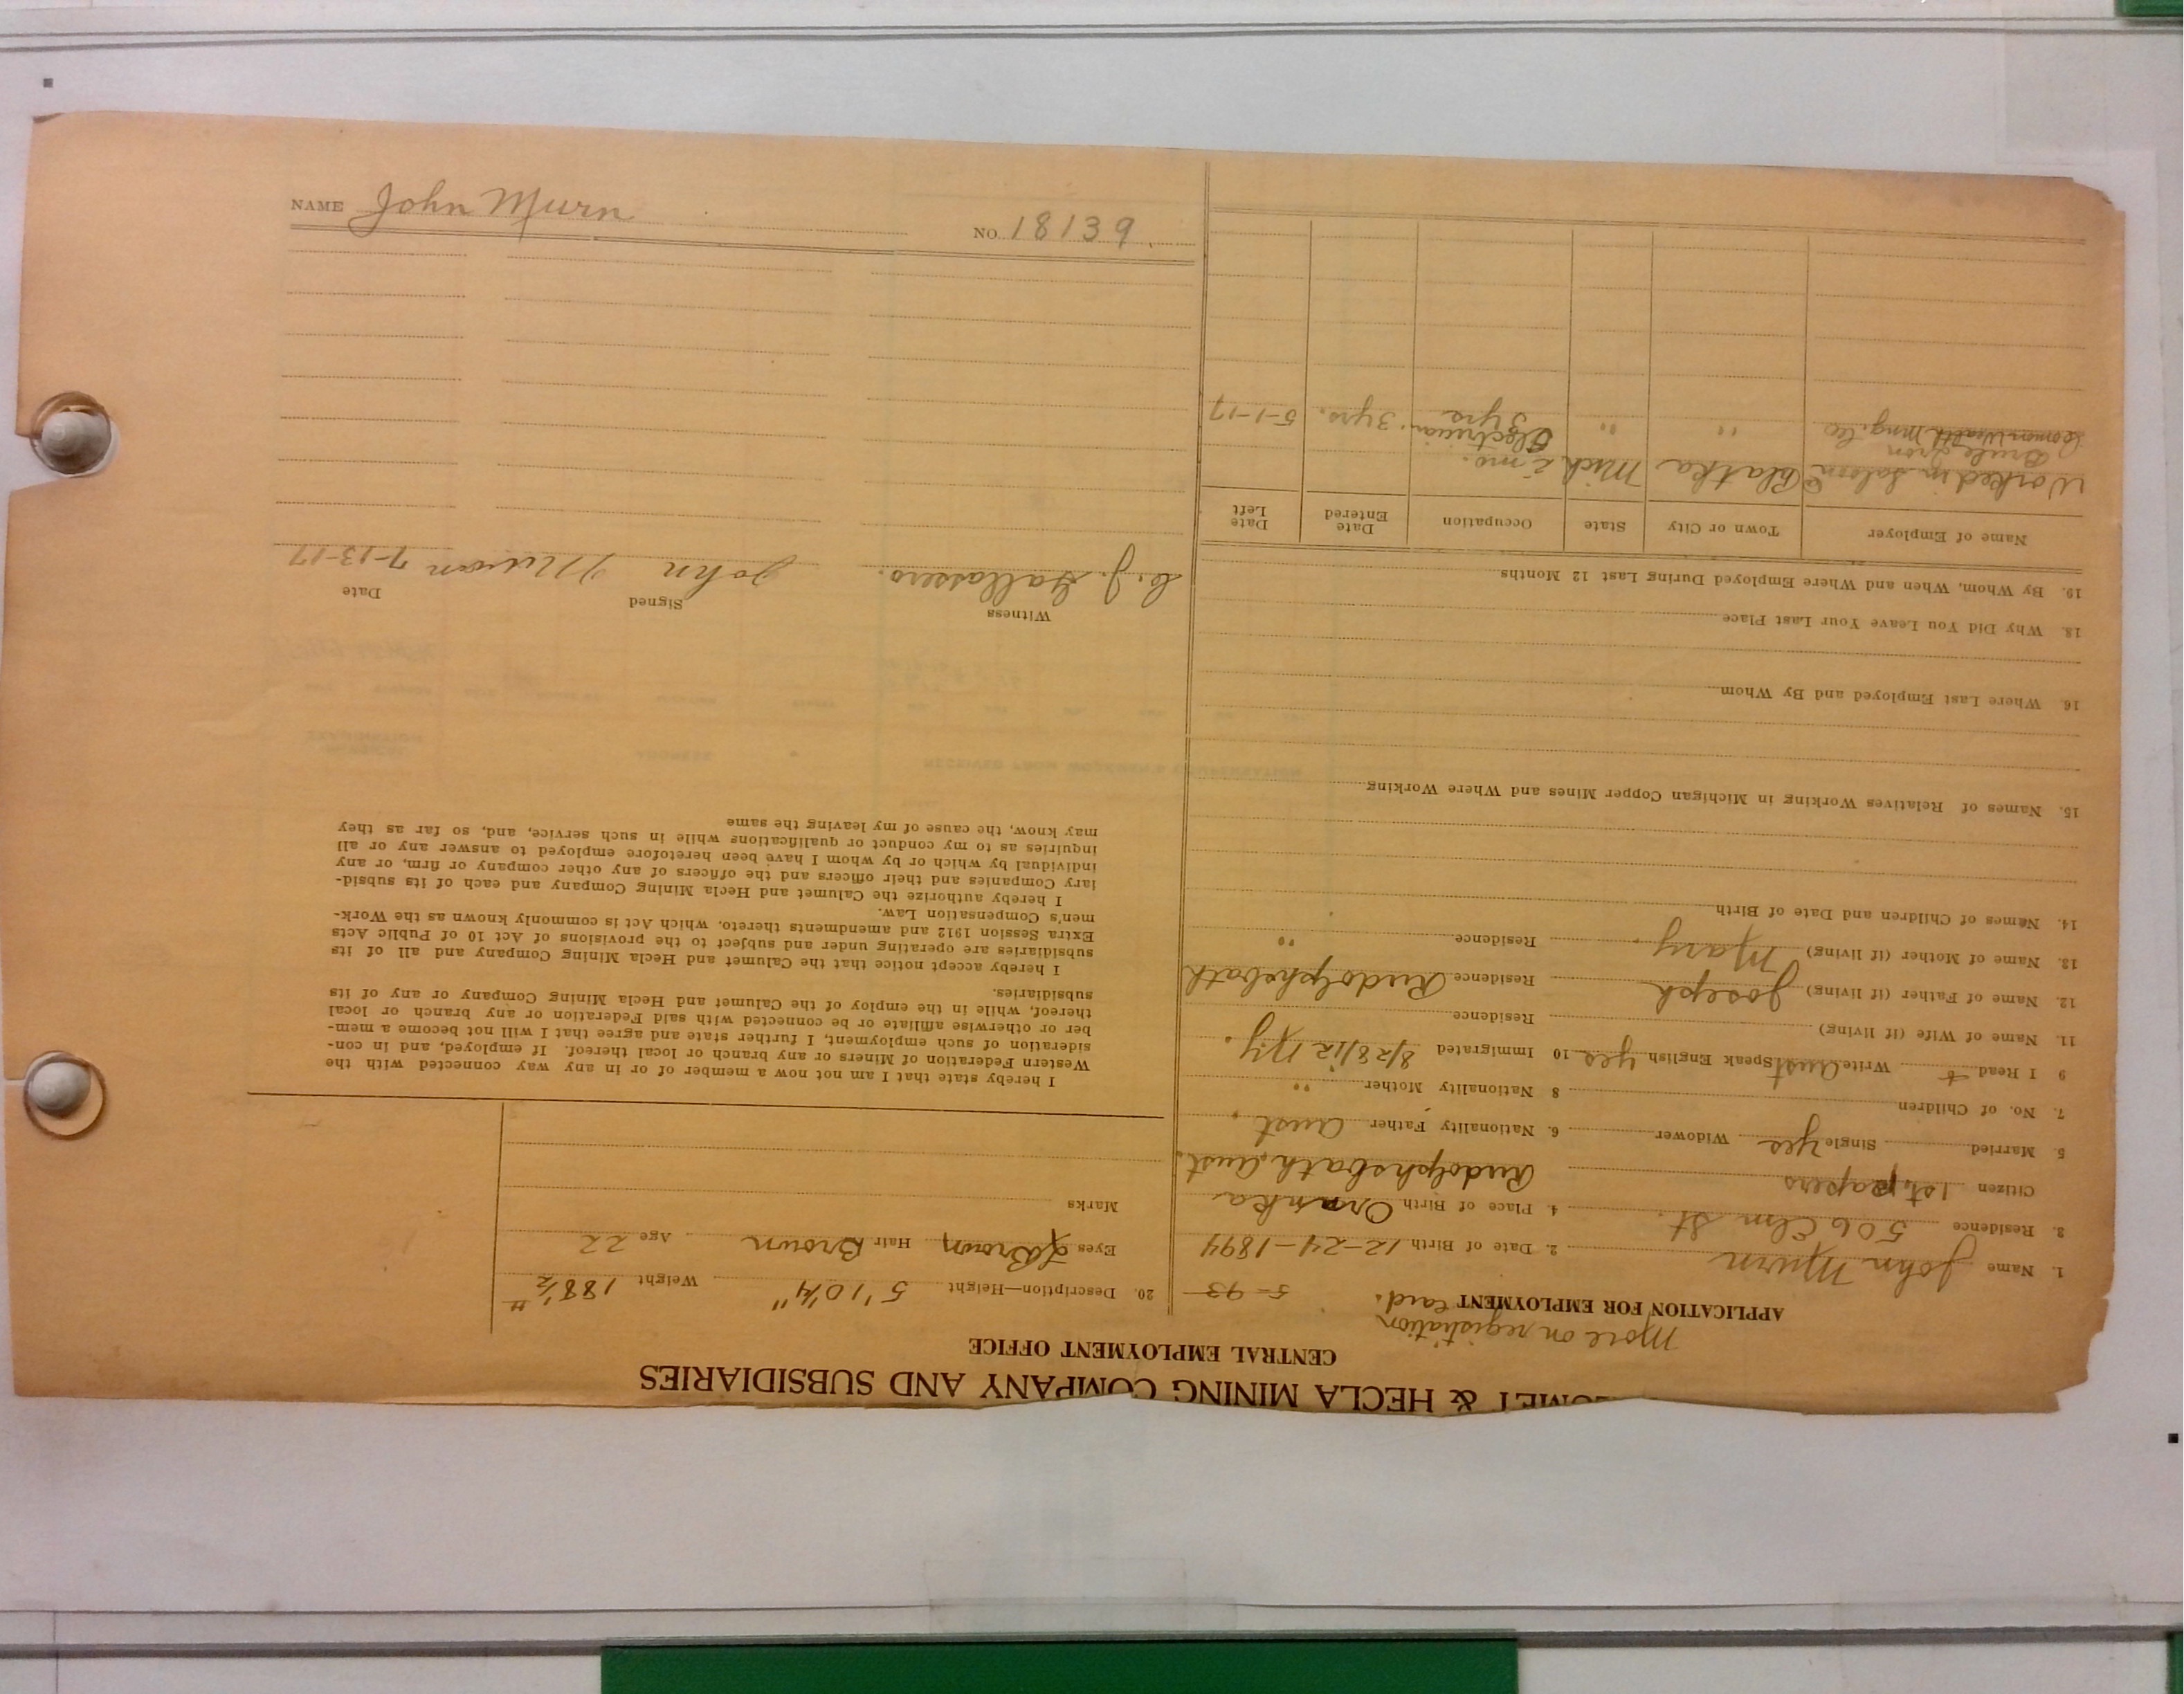 NAME John Murn NO. 18139
UMET & HECLA MINING COMPANY AND SUBSIDIARIES
CENTRAL EMPLOYMENT OFFICE
More on registration
APPLICATION FOR EMPLOYMENT card.
5-93
1. Name John Murn 2. Date of Birth 12-24-1894
3. Residence 506 Elm St. 4. Place of Birth Oranka
Citizen 1st papers Rudolphsbath, Aust.
5. Married Single yes Widower 6. Nationality Father Aust.
7. No. of Children 8 Nationality Mother "
9 I Read + Write Aust Speak English yes 10 Immigrated 8/28/12 N.y.
11. Name of Wife (if living) Residence
12. Name of Father (if living) Joseph Residence Rudolphsbath
13. Name of Mother (if living) Mary. Residence "
14. Names of Children and Date of Birth
15. Names of Relatives Working in Michigan Copper Mines and Where Working
16. Where Last Employed and By Whom
18. Why Did You Leave Your Last Place
19. By Whom, When and Where Employed During Last 12 Months
Name of Employer Town or City State Occupation Date Entered Date Left
Worked in Saloon Blatka Mich 2 mo.
Brule Iron Electrician
Commonwealth Mng. Co " " 3 yrs 3 yrs. 5-1-17
20. Description—Height 5' 10 1/4" Weight 188 1/2 #
Eyes L Brown Hair Brown Age 22
Marks
I hereby state that I am not now a member of or in any way connected with the
Western Federation of Miners or any branch or local thereof. If employed, and in con-
sideration of such employment, I further state and agree that I will not become a mem-
ber or otherwise affiliate or be connected with said Federation or any branch or local
thereof, while in the employ of the Calumet and Hecla Mining Company or any of its
subsidiaries.
I hereby accept notice that the Calumet and Hecla Mining Company and all of its
subsidiaries are operating under and subject to the provisions of Act 10 of Public Acts
Extra Session 1912 and amendments thereto, which Act is commonly known as the Work-
men's Compensation Law.
I hereby authorize the Calumet and Hecla Mining Company and each of its subsid-
iary Companies and their officers and the officers of any other company or firm, or any
individual by which or by whom I have been heretofore employed to answer any or all
inquiries as to my conduct or qualifications while in such service, and, so far as they
may know, the cause of my leaving the same
Witness Signed Date
C. J. Gallassero. John Murn 7-13-17